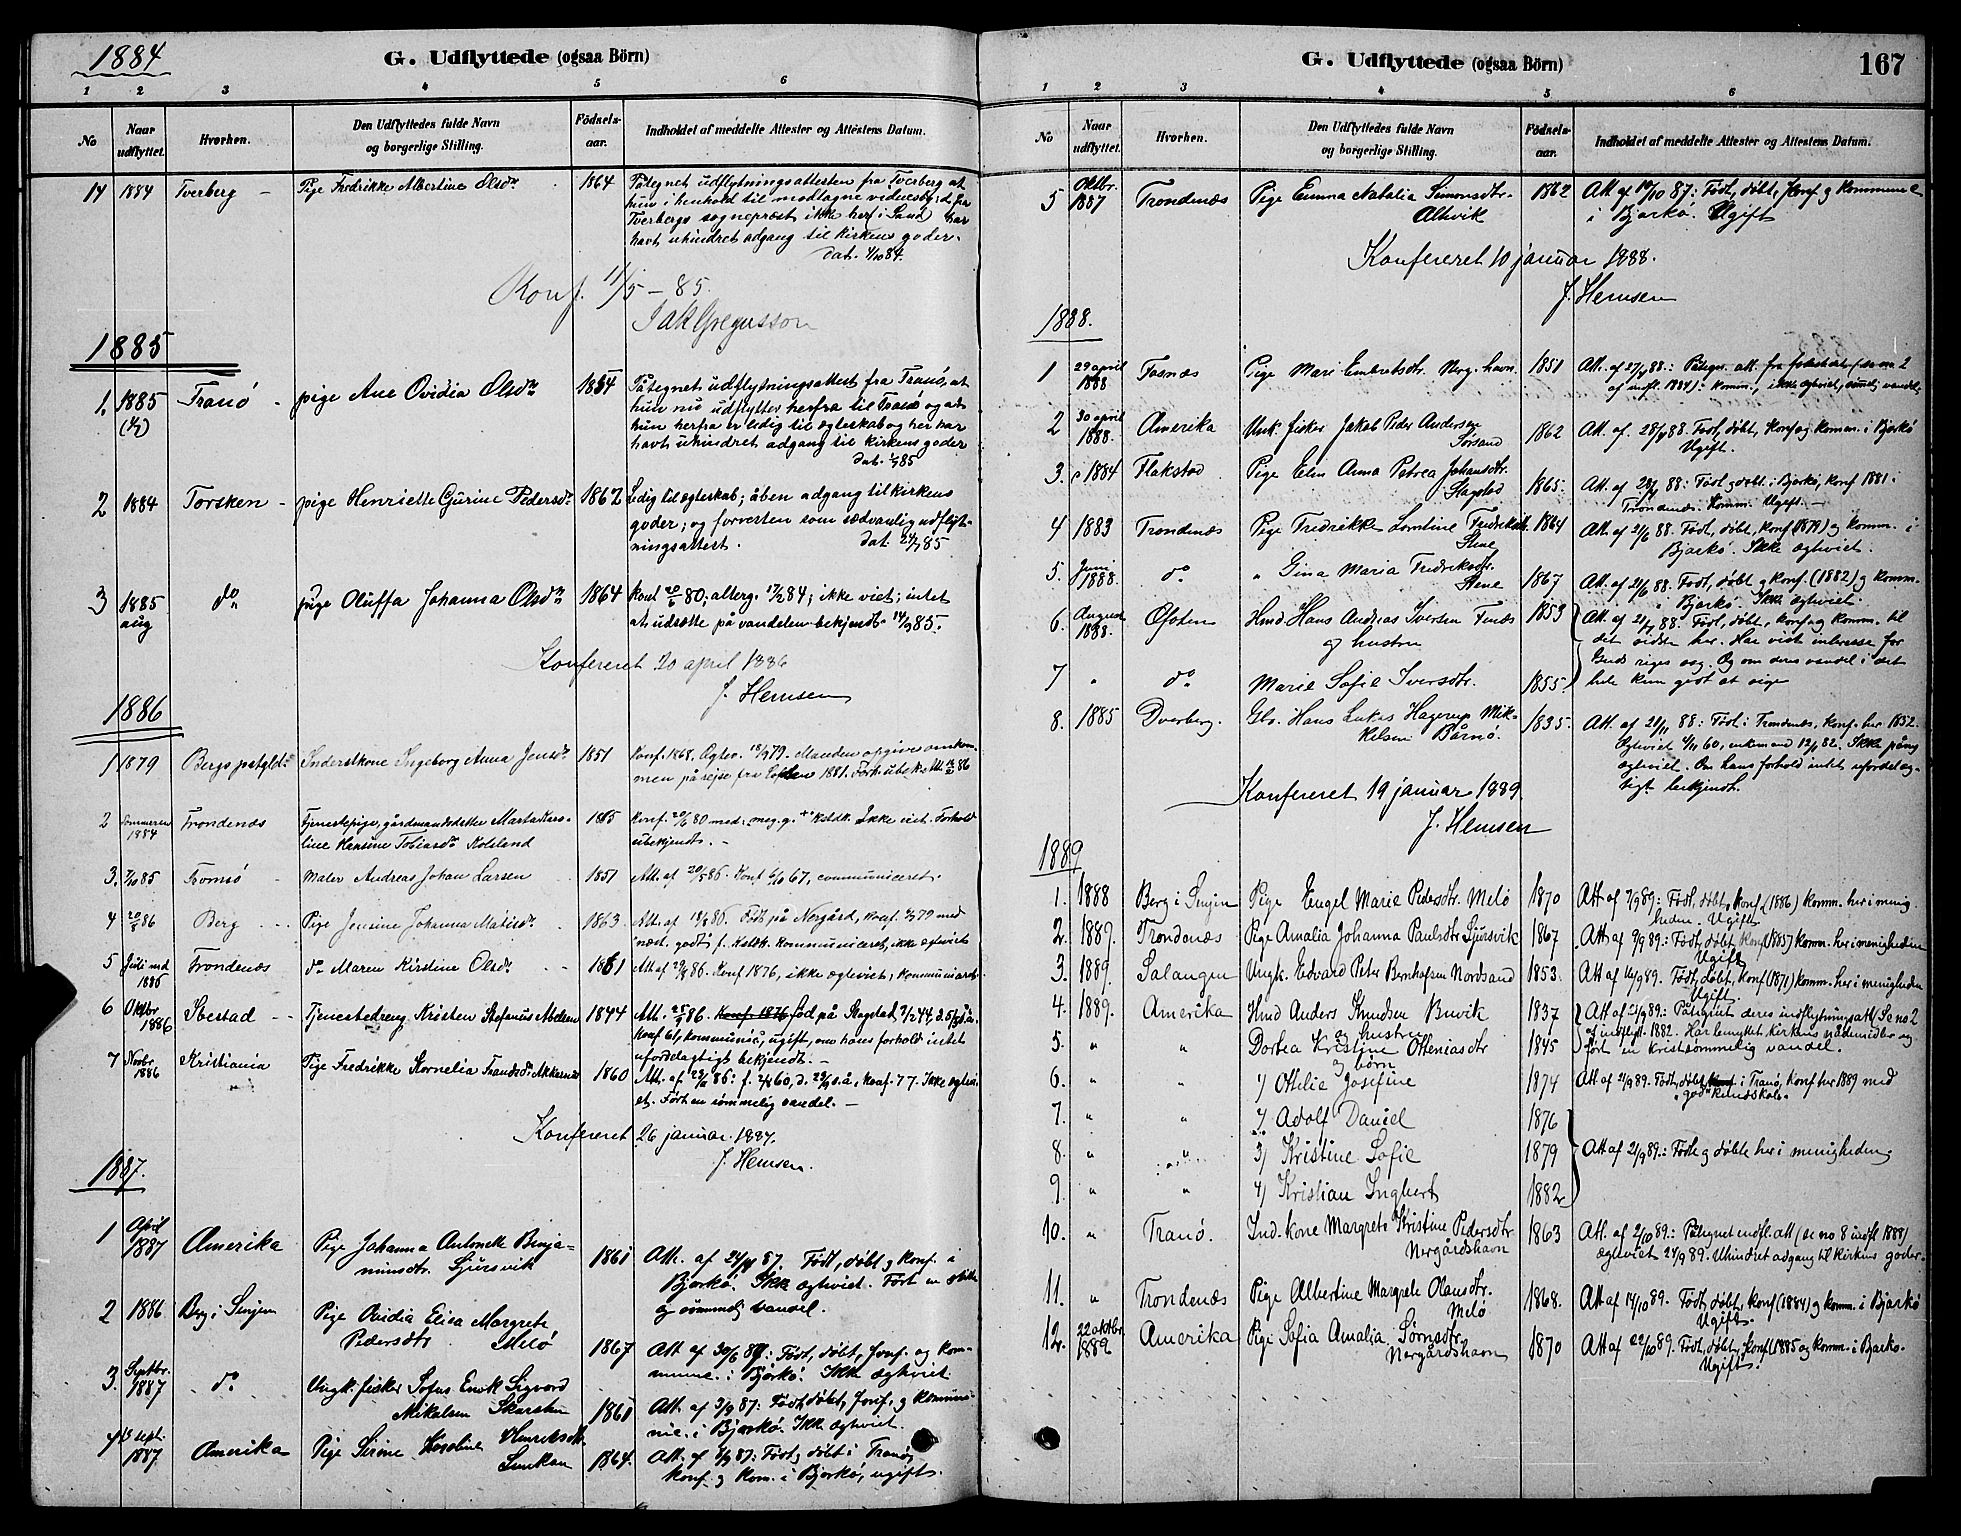 1884
G. Udflyttede (ogsaa Börn)
1 2 3 4 5 6
No
Naar udflyttet.
Hvorhen.
Den Udflyttedes fulde Navn og borgerlige Stilling.
Födsels-aar.
Indholdet af meddelte Attester og Attestens Datum.
14 1884 Tverberg - Pige Fredrikke Albertine Olsdtr 1864 Påtegnet udflytningsattesten fra Tverberg at
hun i henhold til modtagne vidnesb.
Tverbergs sogneprest ikke her i Sand har
havt uhindret adgang til kirkens goder.
dat. 4/10 84.
Konf. 11/5 - 85.
Jak Gregusson
1885
1. 1885 Tranö - pige Ane Ovidia Olsdtr 1854 Påtegnet udflytningsattest fra Tranö, at
hun nu udflytter herfra til Tranö og at
hun herfra er ledig til ægteskab og her har
havt uhindret adgang til kirkens goder
dat. 1/7 85
2 1884 Torsken - pige Henriette Gurine Pedersdtr 1862 Ledig til ægteskab; åben adgang til kirkens
goder; og forresten som sædvanlig udflyt-
ningsattest. dat. 24/7 85
3 1885 aug do pige Oluffa Johanna Olsdtr 1864 Konf 20/6 80; alterg. 17/2 84; ikke viet; intet
at udsætte på vandelen bekjendt. 14/9 85.
Konfereret 20 april 1886
J. Hemsen
1886
1 1879 Bergs prstgld. Inderstkone Ingeborg Anna Jensdtr 1851 Konf. 1868. Ægtev. 18/9 79. Manden opgives omkom-
men på rejse fra Lofoten 1881. Forh. ubek.
2 Sommeren 1884 Trondenæs Tjenestepige, gårdmandsdatter Marta Kars-
tine Hansine Tobiasdtr Kolsland 1865 Konf. 20/6 80 med: meg. g. + Kstdk. Ikke viet. Forhold
ubekjendt. -
3. 7/10 85 Tromsö Maler Andreas Johan Larsen 1851 Att. af 20/5 86. Konf 6/10 67, communiceret.
4 20/5 86 Berg - Pige Jensine Johanna Matisdtr 1863 Att. af 18/6 86. Födt på Nergård, konf. 79 med
næst. godt f. Kstdk. kommuniceret, ikke ægteviet
5 Juli md 1886 Trondenæs do Maren Kirstine Olsdtr 1861 Att af 29/7 86. Konf 1876, ikke ægteviet, kommuniceret
6 Oktbr 1886 Ibestad - Tjenestedreng Kristen Stefanus Adsen 1844 Att. 25/9 86. Konf 1876 född på Slagstad 2/2 44, d. 5/5 s.å.
Konf 61, kommunic., ugift, om hans forhold intet
ufordelagtigt bekjendt. -
7 Novbr. 1886 Kristiania Pige Fredrikke Kornelia Trandsdtr Akkarnes 1860 Att. af 29/11 86: f. 2/4 60, d. 29/4 s.å, konf. 77. Ikke ægtevi-
et. Fört en sömmelig vandel. -
Konfereret 26 januar 1887.
J. Hemsen.
1887.
1 April 1887 Amerika Pige Johanna Antonette Binja-
minsdtr. Sjursvik 1861 Att. af 24/4 87. Födt, döbt og konf. i
Bjarkö. Ikke ægteviet. Fört en stille
og sömmelig vandel.
2 1886 Berg i Senjen Pige Ovidia Elica Margrete
Pedersdtr Melö 1867 Att af 30/6 87: Födt, döbt, konf. og kom-
munic. i Bjarkö. Ikke ægteviet.
3. Septbr. 1887 do Ungk. fisker Sofus Enok Sigvard
Mikalsen Skarsten 1861 Att. af 3/9 87: Födt, döbt, konf. og kommu-
nic. i Bjarkö. Ikke ægteviet.
4 13 sept. 1887 Amerika Pige Serine Karoline Henriksdtr.
Lenkan 1864. Att. af 3/9 87: Födt og döbt i Tranö,
konf. og kom. i Bjarkö, ugift.
G. Udflyttede (ogsaa Börn)
167
1 2 3 4 5 6
No
Naar udflyttet.
Hvorhen.
Den Udflyttedes fulde Navn og borgerlige Stilling.
Födsels-aar.
Indholdet af meddelte Attester og Attestens Datum.
5 Oktbr. 1887 Trondenæs Pige Emma Natalia Simonsdtr.
Altevik 1862 Att af 10/10 87: Födt, döbt, konf og kommunic
i Bjarkö. Ugift
Konfereret 10 januar 1888.
J. Hemsen
1888.
1 29 april 1888 Tosnæs Pige Mari Embretsdtr. Nerg.havn 1851 Att. af 27/4 88: Påtegn. att. fra (se no 2
af indfl. 1884): komm., ikke ægteviet, sömmelig vandel,
2 30 april 1888. Amerika Unk. fisker Jakob Peder Andersen
Sörsand 1862 Att. af. 28/4 88. Födt, döbt, konf og komm. i Bjarkö
Ugift.
3. 1884 Flakstad Pige Elen Anna Petrea Johansdtr.
Slagstad 1865. Att. af 28/4 88: Födt og döbt i Bjarkö, konf 1881 i
Trondenæs. Komm. Ugift. -
4 1883 Trondenæs Pige Fredrikke Lorntine Fredriksdtr.
Stene 1864 Att. af 21/6 88. Födt, döbt, konf (1879) og komm. i
Bjarkö. Ikke ægteviet.
5. Juni 1888. do " Gina Maria Fredriksdtr.
Stene 1867 Att. af 21/6 88. Födt, döbt og konf. (1882) og komm.
i Bjarkö Ikke ægteviet.
6. August 1888. Ofoten Hmd. Hans Andreas Iversen Fenes
og hustru 1853 Att. af 21/7 88. Födt, döbt, konf og komm. til
det sidste her. Har vist interesse for
Guds riges sag. Og om deres vandel i det
7 " do Marie Sofie Iversdtr. 1855 hele kun godt at sige
8. 1885 Dverberg. Gbr. Hans Lukas Hagerup Mik-
kelsen Bårnö. 1835. Att. af 21/11 88: Födt i Trondenæs, konf. her 1852.
Ægteviet 4/11 60, enkemand 12/1 82. Ikke påny
ægteviet. Om hans forhold intet ufordelag-
tigt bekjendt.
Konfereret 19 januar 1889
J. Hemsen
1889
1. 1888 Berg i Senjen Pige Engel Marie Pedersdtr. Melö 1870 Att af 7/9 89: Födt, döbt, konf (1886) komm. her i menig-
heden. Ugift
2. 1889. Trondenæs Pige Amalia Johanna Paulsdtr Sjursvik 1867 Att af 9/9 89: Födt, döbt, konf (1885) komm. her i menigheden
Ugift
3. 1889. Salangen Ungk. Edvard Peter Bernhofsen Nordsand 1853. Att af 14/9 89. Födt, döbt, konf (1871) komm. her i menigheden
Ugift.
4. 1889. Amerika Hmd Anders Knudsen Buvik 1837 Att af 21/9 89: Påtegnet deres indflytningsatt (Se no 2
og hustru
af indflyt. 1882. Har benyttet kirkens nådemidler og
5. " " Dortea Kristine Otteniasdtr 1845 fört en kristsömmelig vandel.
og börn
6. " " 1) Ottelie Josefine 1874 Att af 21/9 89. Födt, döbt konf i Tranö, konf her 1889 med
"god" kundskab.
7. " " 2) Adolf Daniel 1876
8. " " 3) Kristine Sofie 1879 Att af 21/9 89.: Födte og döbte her i menigheden
9. " " 4) Kristian Ingbert 1882
10. " Tranö. Ind. kone Margrete Kristine Pedersdtr
Nergårdshavn 1863 Att. af 2/10 89: Påtegnet indfl. att (se no 8 indfl 1888)
ægteviet 24/9 89. Uhindret adgang til kirkens goder.
11. " Trondenæs Pige Albertine Margrete Olausdtr.
Melö 1868. Att af 14/10 89. Födt, döbt, konf (1884) og komm. i Bjarkö
Ugift.
12. 22 oktbr. 1889 Amerika Pige Sofia Amalia Sörnsdtr.
Nergårdshavn 1870 Att af 22/10 89. Födt, döbt, konf (1885 og komm. i Bjarkö.
Ugift.